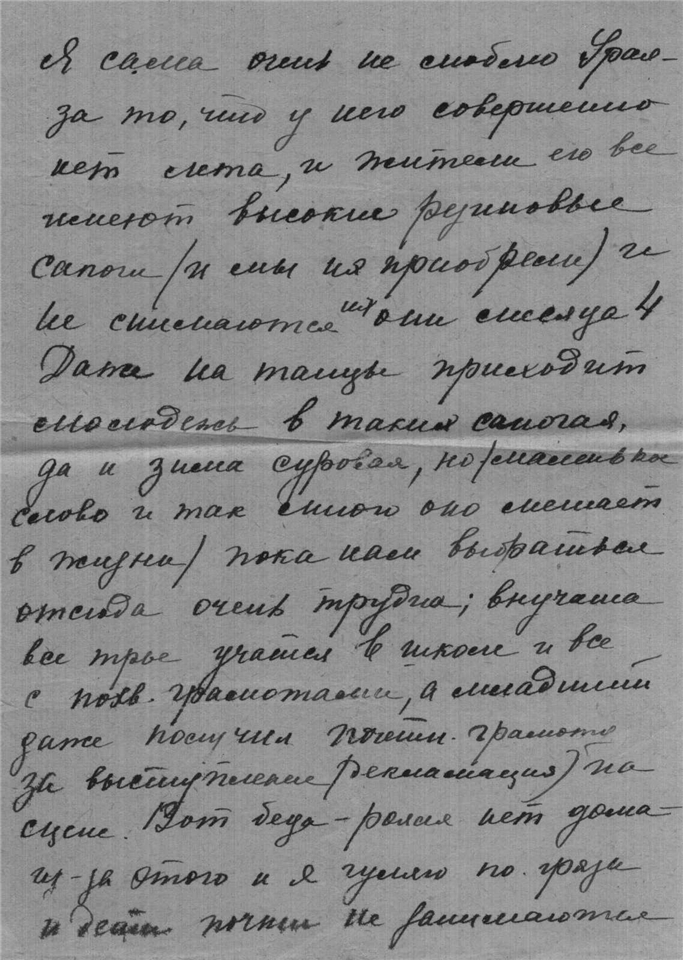 Я сама очень не люблю Урал-
за то, что у него совершенно
нет лета, и жители его все
имеют высокие резиновые
сапоги (и мы их приобрели) и
не снимаются их они месяца 4
Даже на танцы приходит
молодежь в таких сапогах,
да и зима суровая, но (маленькое
слово и так много оно мешает
в жизни) пока нам выбраться
отсюда очень трудно; внучата
все трое учатся в школе и все
с похв. грамотами, а младший
даже получил почетн. грамоту
за выступление (декламация) на
сцене. Вот беда - рояля нет дома-
из-за этого и я гуляю по грязи
и дети почти не занимаются